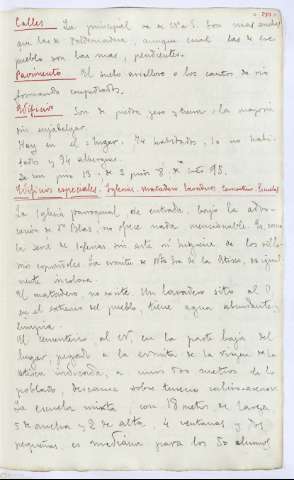 Calles La principal va de N. a S. Son mas anchas
que las de Valdemadera, aunque cual las de ese
pueblo son las mas, pendientes.
Pavimento El suelo arcilloso o los cantos de rio
formando empedrados.
Edificios Son de piedra yeso y la mayoria
sin enjalbegar.
Hay en el lugar, 74 habitados, 10 no habi-
tados y 34 albergues.
De un piso 13 - de 2 pisos 8, de 95.
Edificios especiales. Iglesias matadero lavadero cementerio Escuelas
La Iglesia parroquial, de entrada, bajo la advo-
cación de Sn Blas, no ofrece nada mencionable. Es como
la serie de Iglesias sin arte ni higiene de los villo-
rrios españoles. La ermita de Ntra Sra de la, es igual-
mente incolora.
El matadero, no existe. Un lavadero sito al O.
en el extremo del pueblo, tiene agua abundante y
limpia.
El cementerio, al, en la parte baja del
lugar, pegado a la ermita de la virgen de la
indicada, a unos 200 metros de lo
poblado descansa sobre terreno calizo-arenoso
La escuela mixta, con 18 metros de larga,
5 de ancha y 2 de alta, 4 ventanas y dos
pequeñas, es mediana para los 50 alumnos